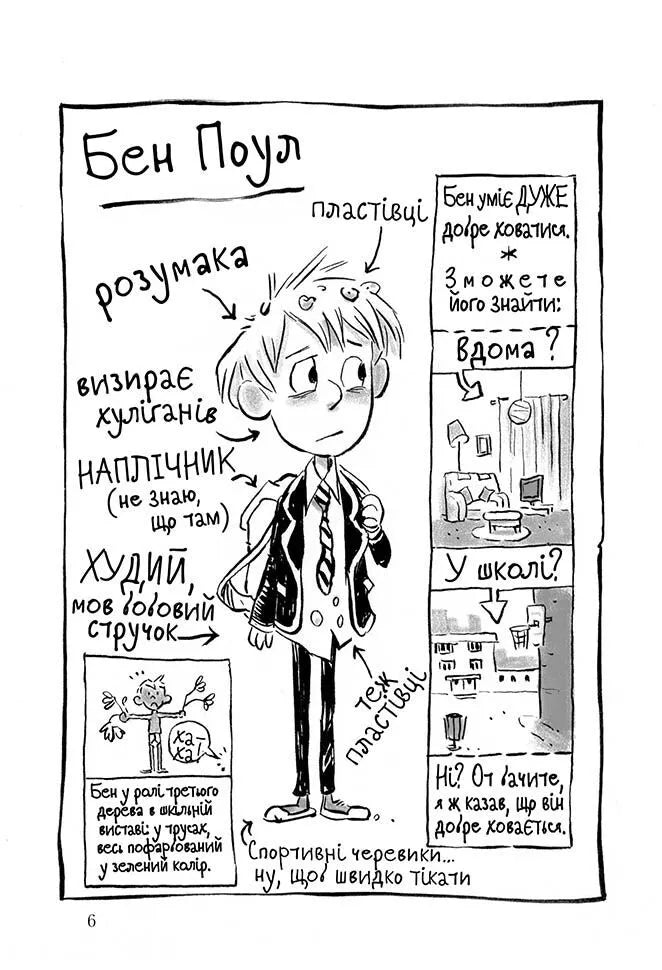 Бен Поул
пластівці
розумака
визирає
хуліганів
НАПЛІЧНИК
(не знаю,
що там)
ХУДИЙ,
мов бобовий
стручок
теж
пластівці
ха-
ха!
Бен у ролі третього
дерева в шкільній
виставі: у трусах,
весь пофарбований
у зелений колір.
Спортивні черевики...
ну, щоб швидко тікати
Бен уміє ДУЖЕ
добре ховатися.
*
Зможете
його знайти:
Вдома?
У школі?
Ні? От бачите,
я ж казав, що він
добре ховається.
6